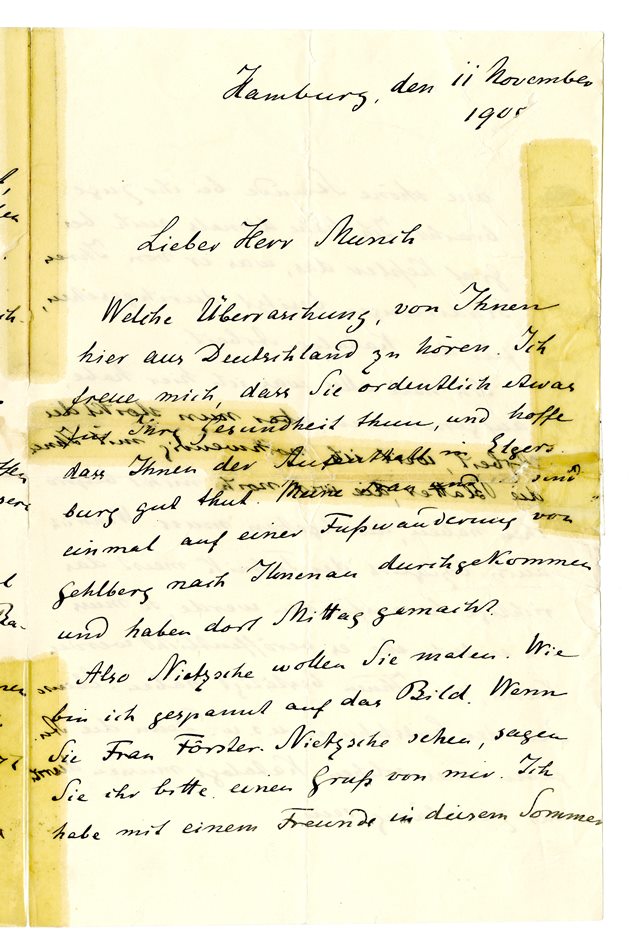 Hamburg, den 11 November
190
Lieber Herr Munch
Welche Überraschung, von Ihnen
hier aus Deutschland zu hören. Ich
freue mich, dass Sie ordentlich etwas
für Ihre Gesundheit thun, und hoffe
dass Ihnen der Aufenthalt in Elgers
burg gut thut. Meine Frau und sind
einmal auf einer Fußwanderung von
Gehlberg nach Ilmenau durchgekommen
und haben dort Mittag gemacht.
Also Nietzsche wollen Sie malen. Wie
bin ich gespannt auf das Bild. Wenn
Sie Frau Förster-Nietzsche sehen, sagen
Sie ihr bitte einen Gruß von mir. Ich
habe mit einem Freunde in diesem Sommer